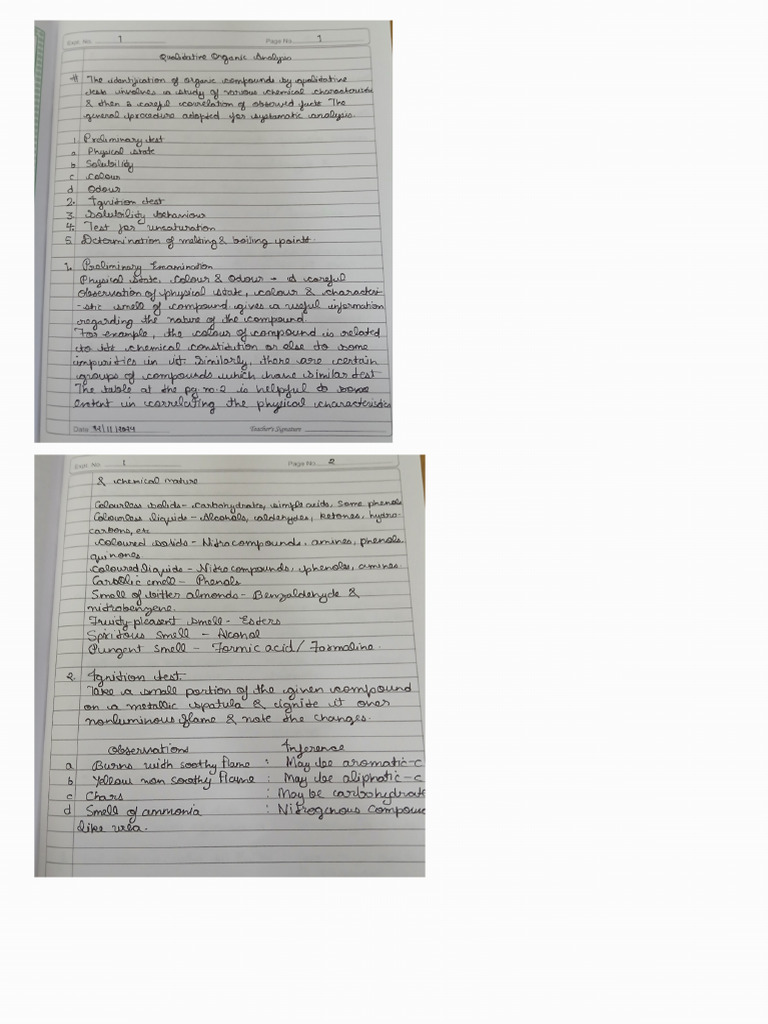 Expt. No. 1 Page No. 1
Qualitative Organic Analysis
# The identification of organic compounds by qualitative
tests involves a study of various chemical characteristics
& then a careful correlation of observed facts. The
general procedure adopted for systematic analysis.
1. Preliminary test
a Physical state
b Solubility
c Colour
d Odour
2. Ignition test
3. Solubility behaviour
4. Test for unsaturation
5. Determination of melting & boiling point.
1. Preliminary Examination
Physical state, Colour & Odour → A careful
observation of physical state, colour & character
-stic smell of compound gives a useful information
regarding the nature of the compound.
For example, the colour of compound is related
to its chemical constitution or else to some
impurities in it. Similarly, there are certain
groups of compounds which have similar test
The table at the pg no.2 is helpful to some
extent in correlating the physical characteristics
Date /11/2024 Teacher's Signature
Expt. No. 1 Page No. 2
& chemical nature
Colourless solids - carbohydrates, simple acids, some phenol
Colourless liquids - Alcohols, aldehydes, ketones, hydro-
carbons, etc
Coloured solids - Nitrocompounds, amines, phenols,
quinones
Coloured liquids - Nitrocompounds, phenols, amines.
Carbolic smell - Phenols
Smell of bitter almonds - Benzaldehyde &
nitrobenzene.
Fruity pleasent smell - Esters
Spiritous smell - Alcohol
Pungent smell - Formic acid / Formaline.
2. Ignition test.
Take a small portion of the given compound
on a metallic spatula & ignite it over
nonluminous flame & note the changes.
Observations Inference
a Burns with soothy flame : May be aromatic-c
b Yellow non soothy flame : May be aliphatic-c
c Chars : May be carbohydrate
d Smell of ammonia : Nitrogenous compoun
like urea.